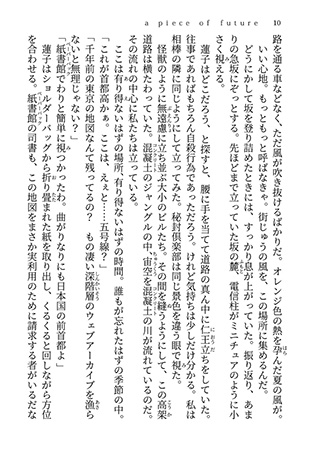 a piece of future
10
路を通る車などなく、ただ風が吹き抜けるばかりだ。オレンジ色の熱を孕んだ夏の風が。
いい心地。もっともっと呼ばなきゃ。街じゅうの風を、この場所に集めるんだ。
どうにかして坂を登り詰めたときには、すっかり息が上がっていた。振り返り、あま
りの急坂にぞっとする。先ほどまで立っていた坂の麓、電信柱がミニチュアのように小
さく視える。
蓮子はどこだろう、と探すと、腰に手を当てて道路の真ん中に仁王立ちをしていた。
往事であればもちろん自殺行為であっただろう。けれど気持ちは少しだけ分かる。私は
相棒の隣に同じようにして立ってみた。秘封倶楽部は同じ景色を違う眼で視た。
怪獣のように無遠慮に立ち並ぶ大小のビルたち。その間を縫うようにして、この高架
道路は横たわっていた。混凝土のジャングルの中、宙空を混凝土の川が流れているのだ。
その流れの中心に私たちは立っている。
ここは有り得ないはずの場所、有り得ないはずの時間。誰もが忘れたはずの季節の中。
「これが首都高かぁ。ここは、えぇと……五号線？」
「千年前の東京の地図なんて残ってるの？　もの凄い深階層のウェブアーカイブを漁ら
ないと無理じゃない？」
「紙書館でわりと簡単に視つかったわ。曲がりなりにも日本国の前首都よ」
蓮子はショルダーバッグから折り畳まれた紙を取り出し、くるくると回しながら方位
を合わせる。紙書館の司書も、この地図をまさか実利用のために請求する者がいるだな